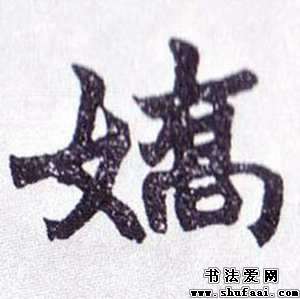 嬌
书法爱网
www.shufaai.com